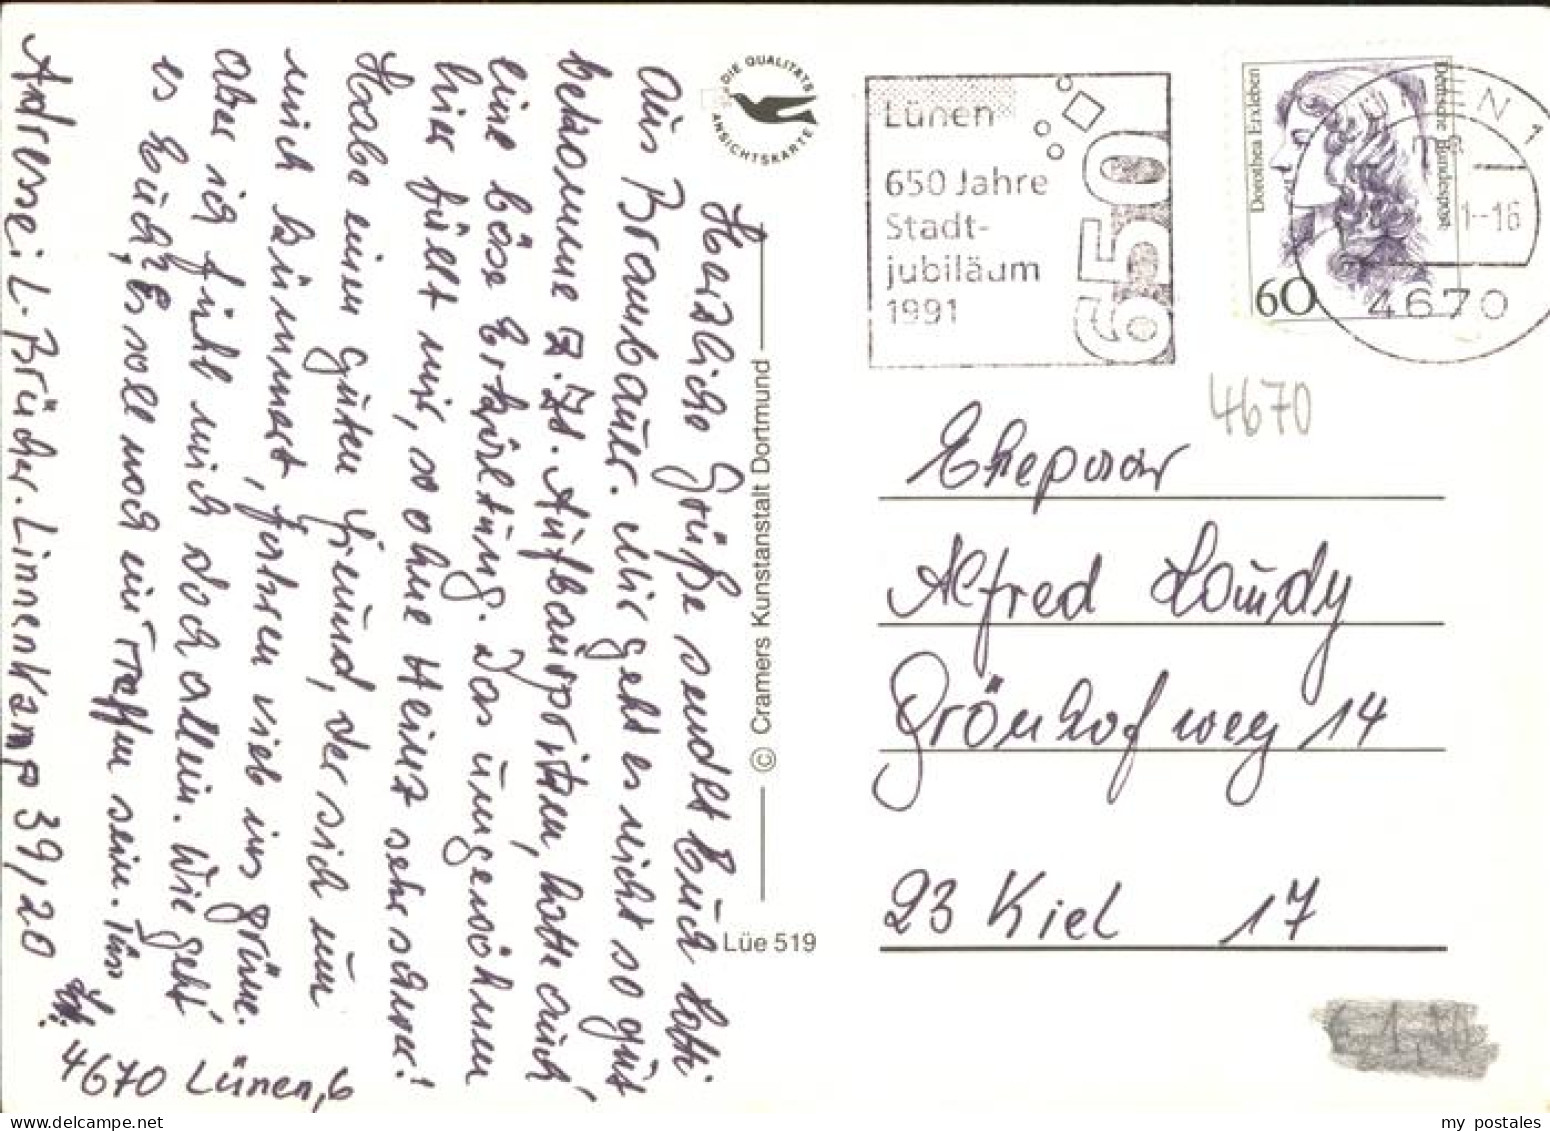 Herzliche Grüße sendet Euch Lotti
aus Brambauer. Mir geht es nicht so gut
bekomme z. Zt. Aufbauspritzen, hatte auch
eine böse Erkältung. Das umgewöhnen
hier fällt mir, so ohne Heinz sehr schwer!
Habe einen guten Freund, der sich um
mich kümmert, fahren viel ins grüne.
aber ich fühl mich doch allein. Wie geht
es Euch? Es soll noch ein Treffen sein.
Adresse: L. Brücher. Linnenkamp 39/20
4670 Lünen, 6
DIE QUALITÄTS
ANSICHTSKARTE
© Cramers Kunstanstalt Dortmund
Lüe 519
Lünen
650 Jahre
Stadt-
jubiläum
1991
650
Dorothea Erxleben
Deutsche Bundespost
60
N 1
1.-16
4670
4670
Ehepaar
Alfred
Grönhofweg 14
23 Kiel 17
my postales